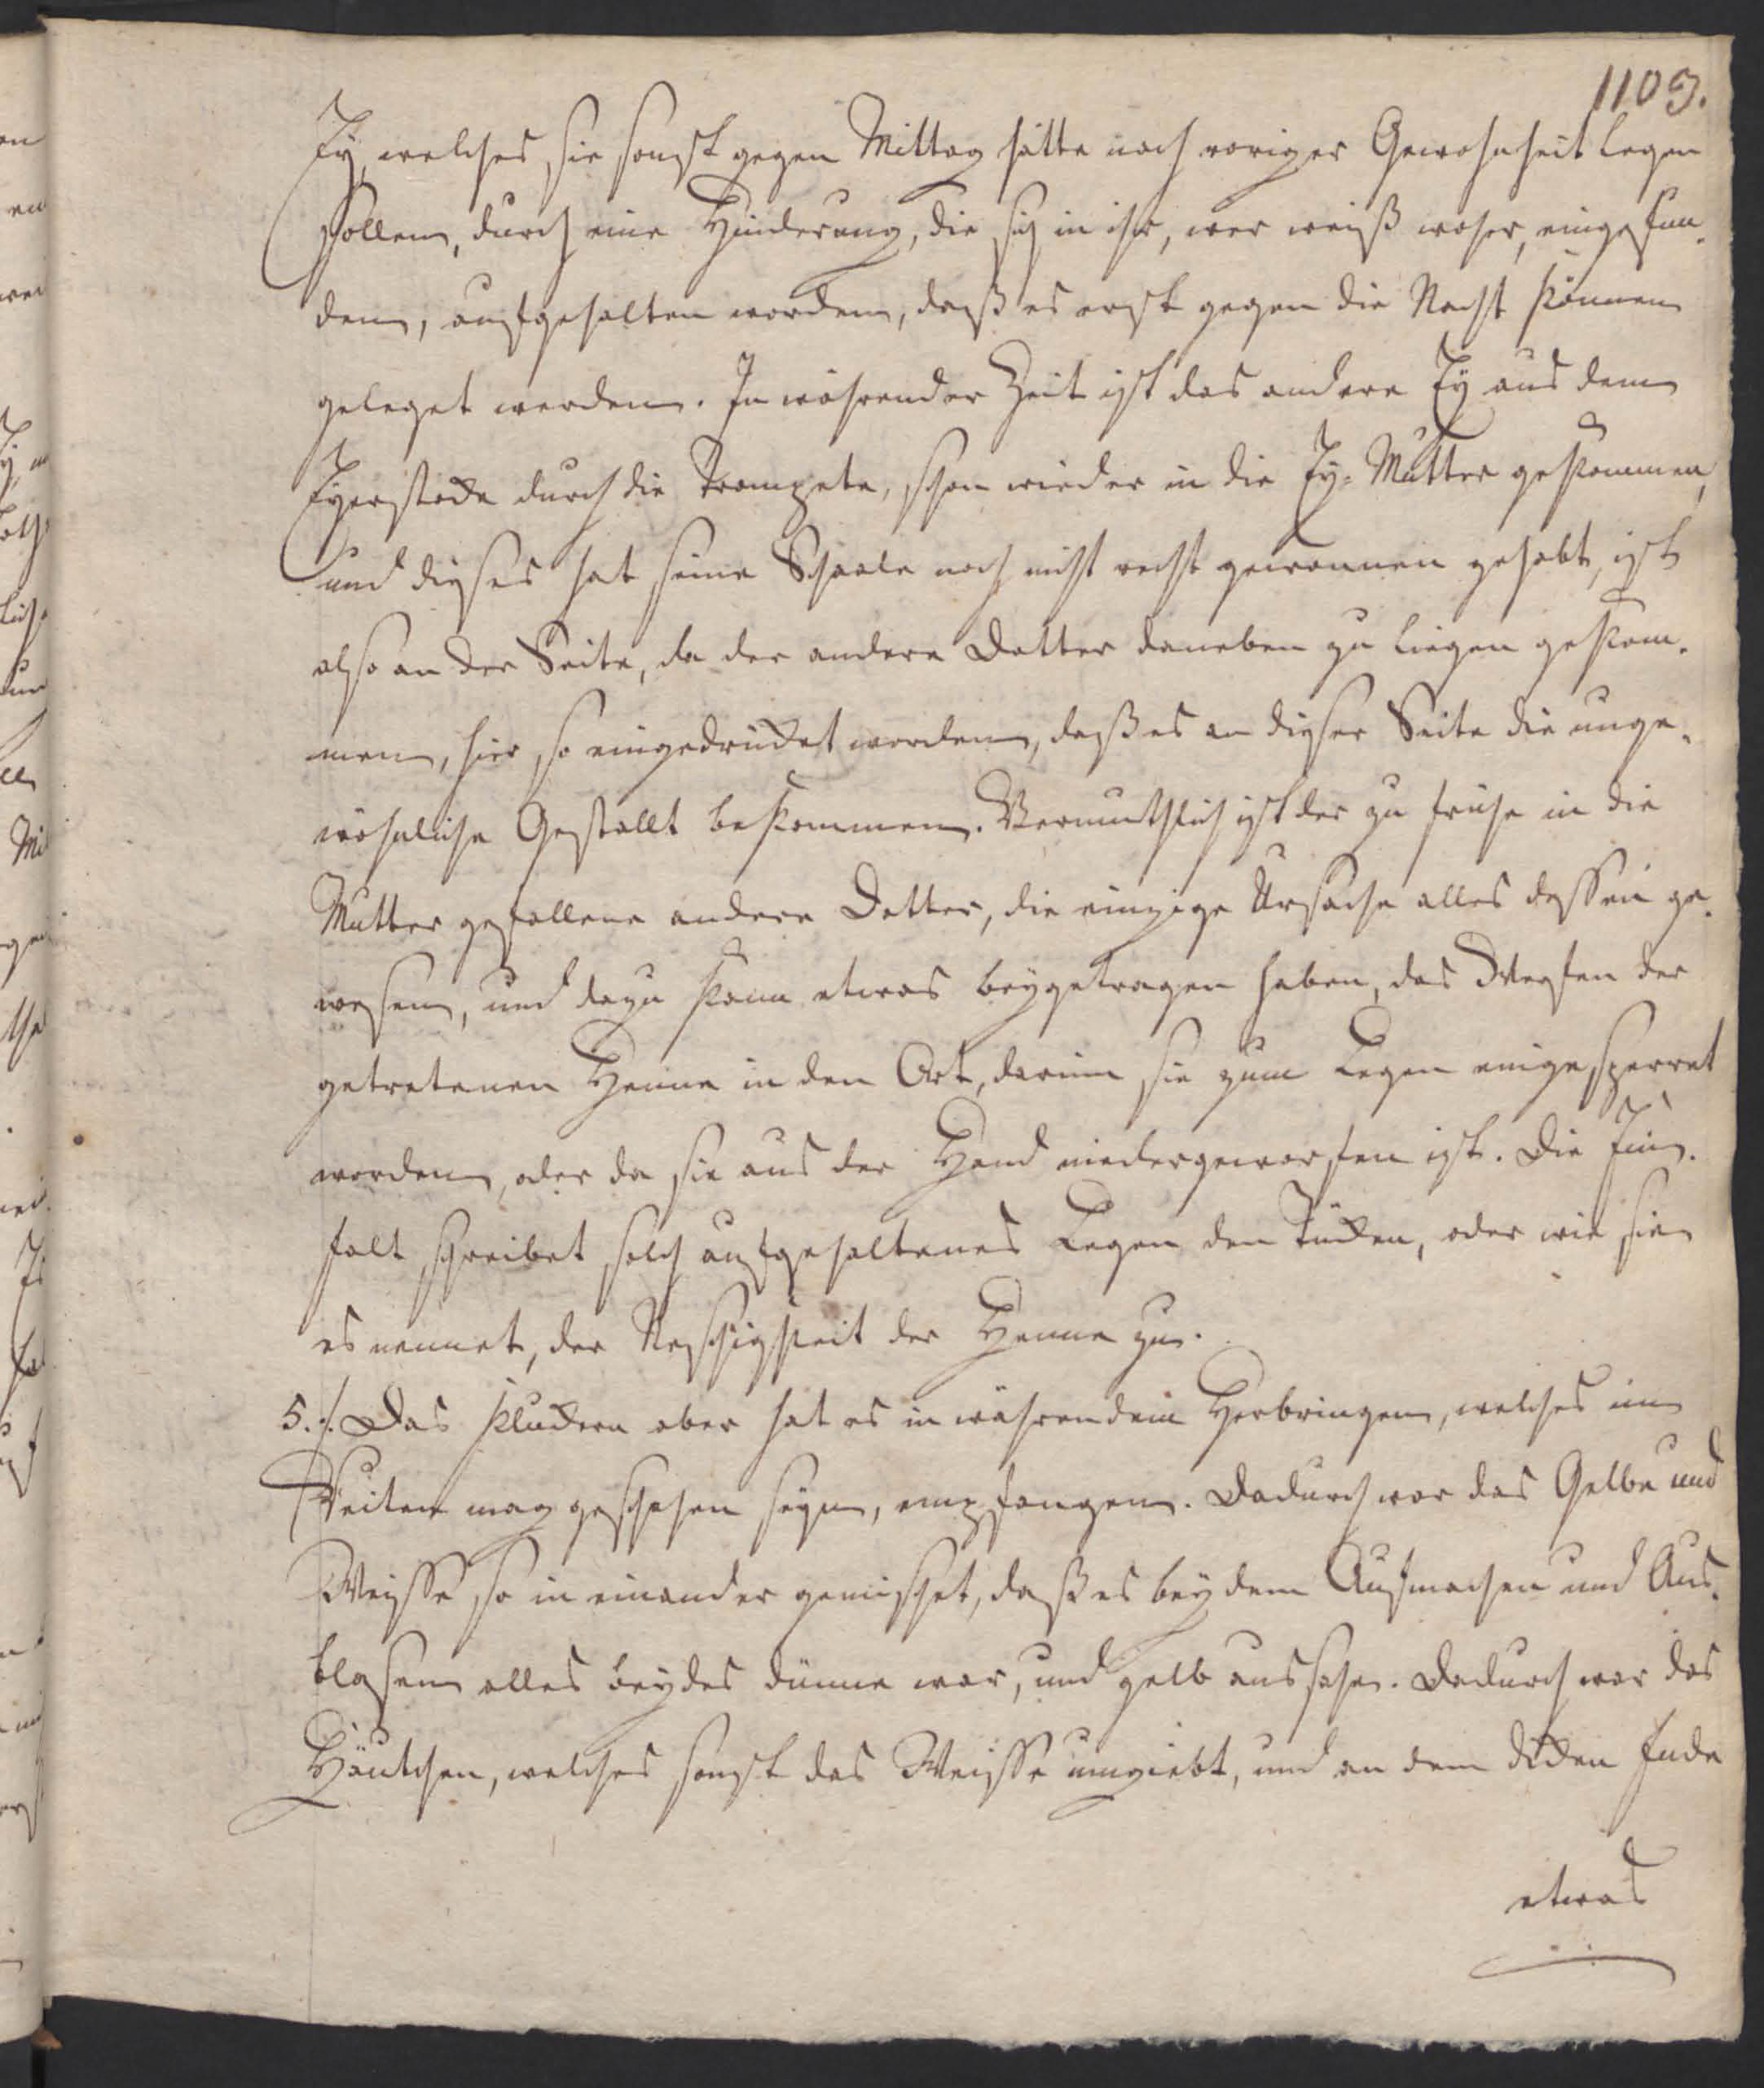 1109.
Ey, welches sie sonst gegen Mittag hätte nach voriger Gewohnheit legen
sollen, durch eine Hinderung, die sich in ihr, wer weiß woher, eingefun-
den, aufgehalten worden, daß es erst gegen die Nacht können
geleget werden. In währender Zeit ist das andere Ey aus dem
Eyerstocke durch die Trompete, schon wieder in die Ey-Mutter gekommen,
und dieses hat seine Schaale noch nicht recht gewonnen gehabt, ist
also an der Seite, da der andere Dotter daneben zu liegen gekom-
men, hier so eingedrückt worden, daß es an dieser Seite die unge-
wöhnliche Gestallt bekommen. Vermuthlich ist der zu frühe in die
Mutter gefallene andere Dotter, die einzige Ursache alles dessen ge-
wesen, und dazu kann etwas beygetragen haben, das Werfen der
getretenen Henne in den Ort, darinn sie zum Legen eingesperret
worden, oder da sie aus der Hand niedergeworfen ist. Die Ein-
falt schreibet solch aufgehaltenes Legen den Tücken, oder wie sie
es nennet, der Neschigkeit der Henne zu.
5./. Das kluckern aber hat es in währendem Herbringen, welches im
Reiten mag geschehen seyn, empfangen. Dadurch war das Gelbe und
Weisse so in einander gemischet, daß es bey dem Aufmachen und Aus-
blasen alles beydes dünne war, und gelb aussahe. Dadurch war das
Häutchen, welches sonst das Weisse umgiebt, und an dem dicken Ende
etwas